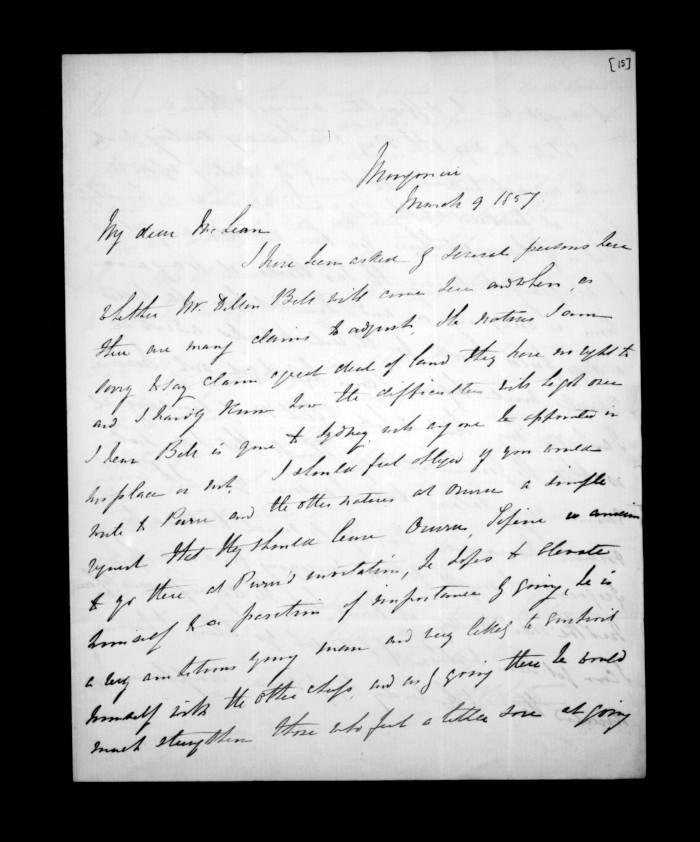 [15]
Mongonui
March 9 1857
My dear McLean
I have been asked by several persons here
whether Mr. Dillon Bell will come here and when, as
there are many claims to adjust, the natives I am
sorry to say claim a great deal of land they have no right to
and I hardly know how the difficulties will be got over
I hear Bell is gone to Sydney, will any one be appointed in
his place or not. I should feel obliged if you would
write to Puru and the other natives at Oruru a simple
request that they should leave Oruru,
to go there at Puru's invitation, he hopes to elevate
himself to a position of importance by going, he is
a very ambitious young man and very to
himself with the other chiefs, and as by going there he would
much strengthen those who feel a little sore at going